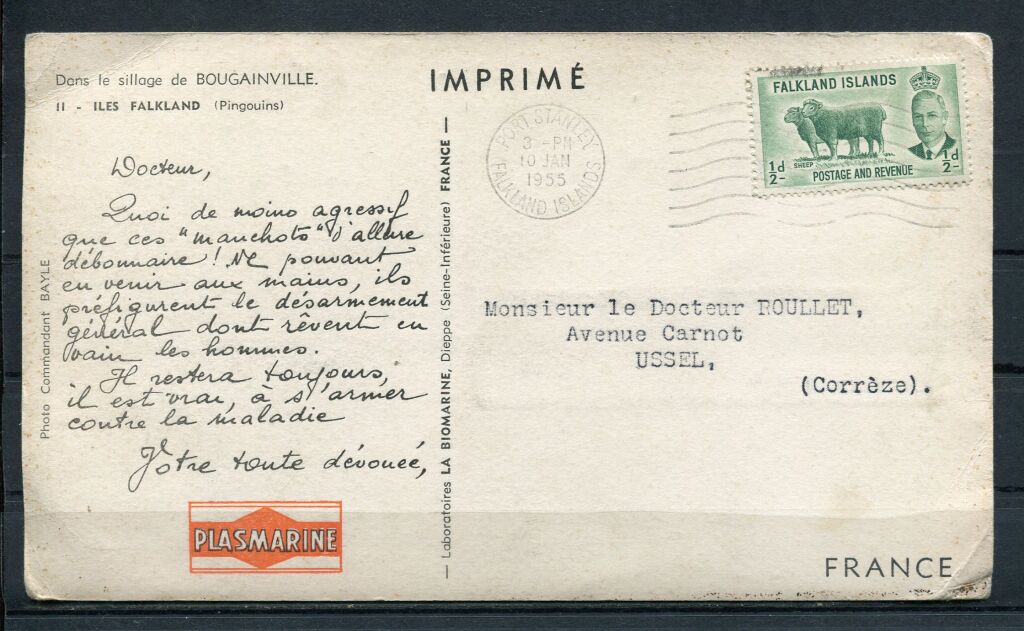 Dans le sillage de BOUGAINVILLE.
II - ILES FALKLAND (Pingouins)
Docteur,
Quoi de moins agressif
que ces "manchots" d'allure
débonnaire ! Ne pouvant
en venir aux mains, ils
préfigurent le désarmement
général dont rêvent en
vain les hommes.
Il restera toujours,
il est vrai, à s'armer
contre la maladie
Votre toute dévouée,
PLASMARINE
Photo Commandant BAYLE
— Laboratoires LA BIOMARINE, Dieppe (Seine-Inférieure) FRANCE —
IMPRIMÉ
PORT STANLEY
3 - PM
10 JAN
1955
FALKLAND ISLANDS
FALKLAND ISLANDS
SHEEP
½d
2-
½d
2-
POSTAGE AND REVENUE
Monsieur le Docteur ROULLET,
Avenue Carnot
USSEL,
(Corrèze).
FRANCE